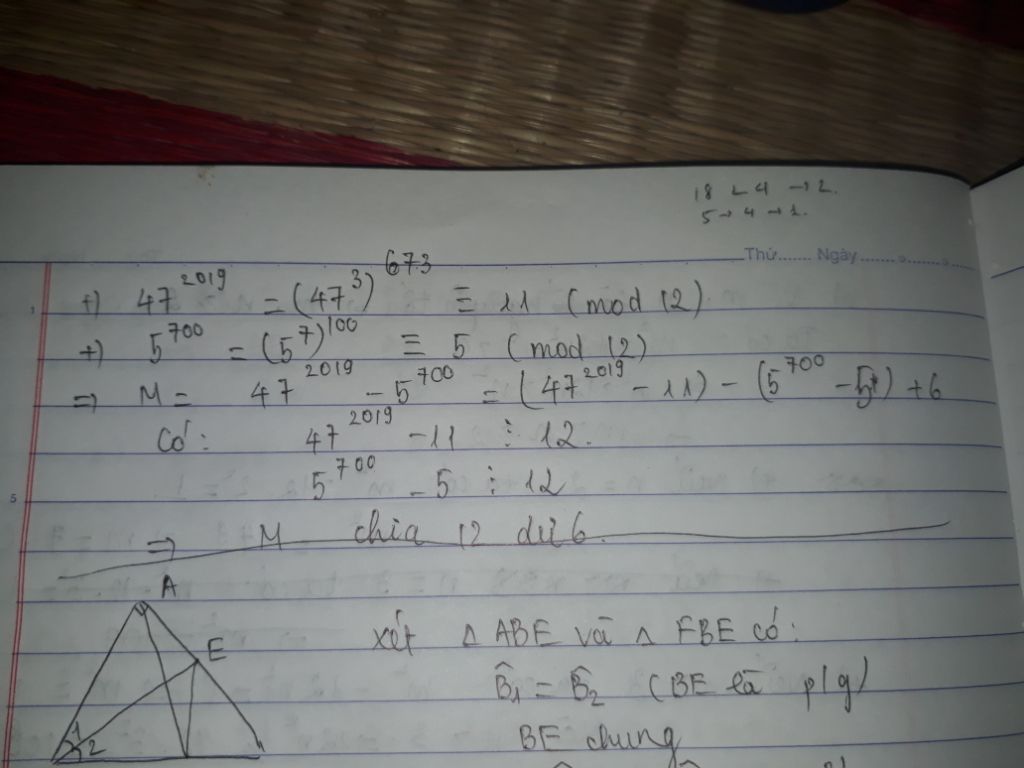 18 ∠ 4 → 2.
5 → 4 → 1.
Thứ....... Ngày
+) 47^2019 = (47^3)^673 ≡ 11 (mod 12)
+) 5^700 = (5^7)^100 ≡ 5 (mod 12)
⇒ M = 47^2019 - 5^700 = (47^2019 - 11) - (5^700 - 5) + 6
Có: 47^2019 - 11 ⋮ 12.
5
5^700 - 5 ⋮ 12
⇒ M chia 12 dư 6.
A
xét Δ ABE và Δ FBE có:
E
B̂1 = B̂2 (BE là p/g)
1
2
BE chung